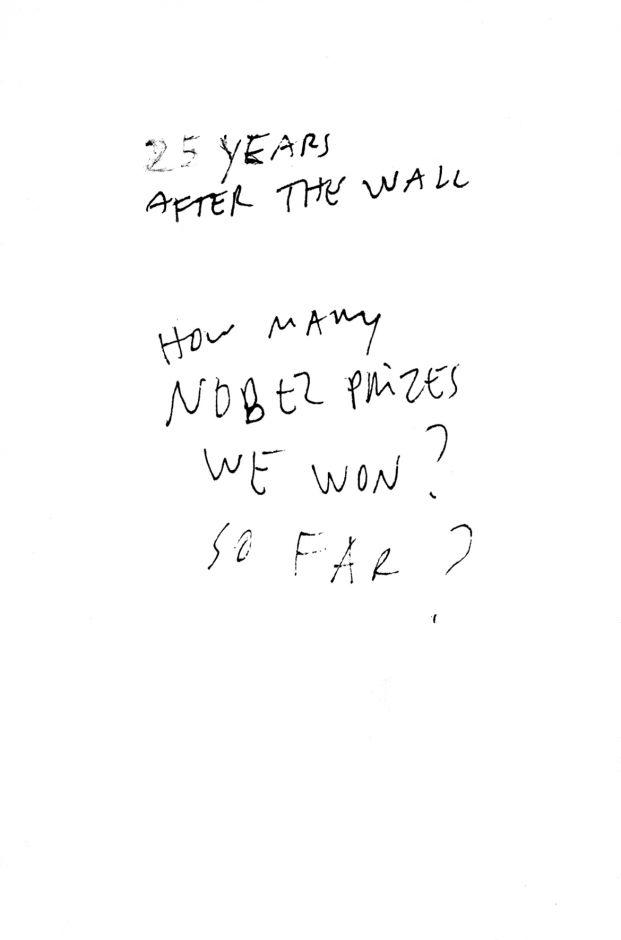 25 YEARS
AFTER THE WALL
HOW MANY
NOBEL PRIZES
WE WON?
SO FAR?